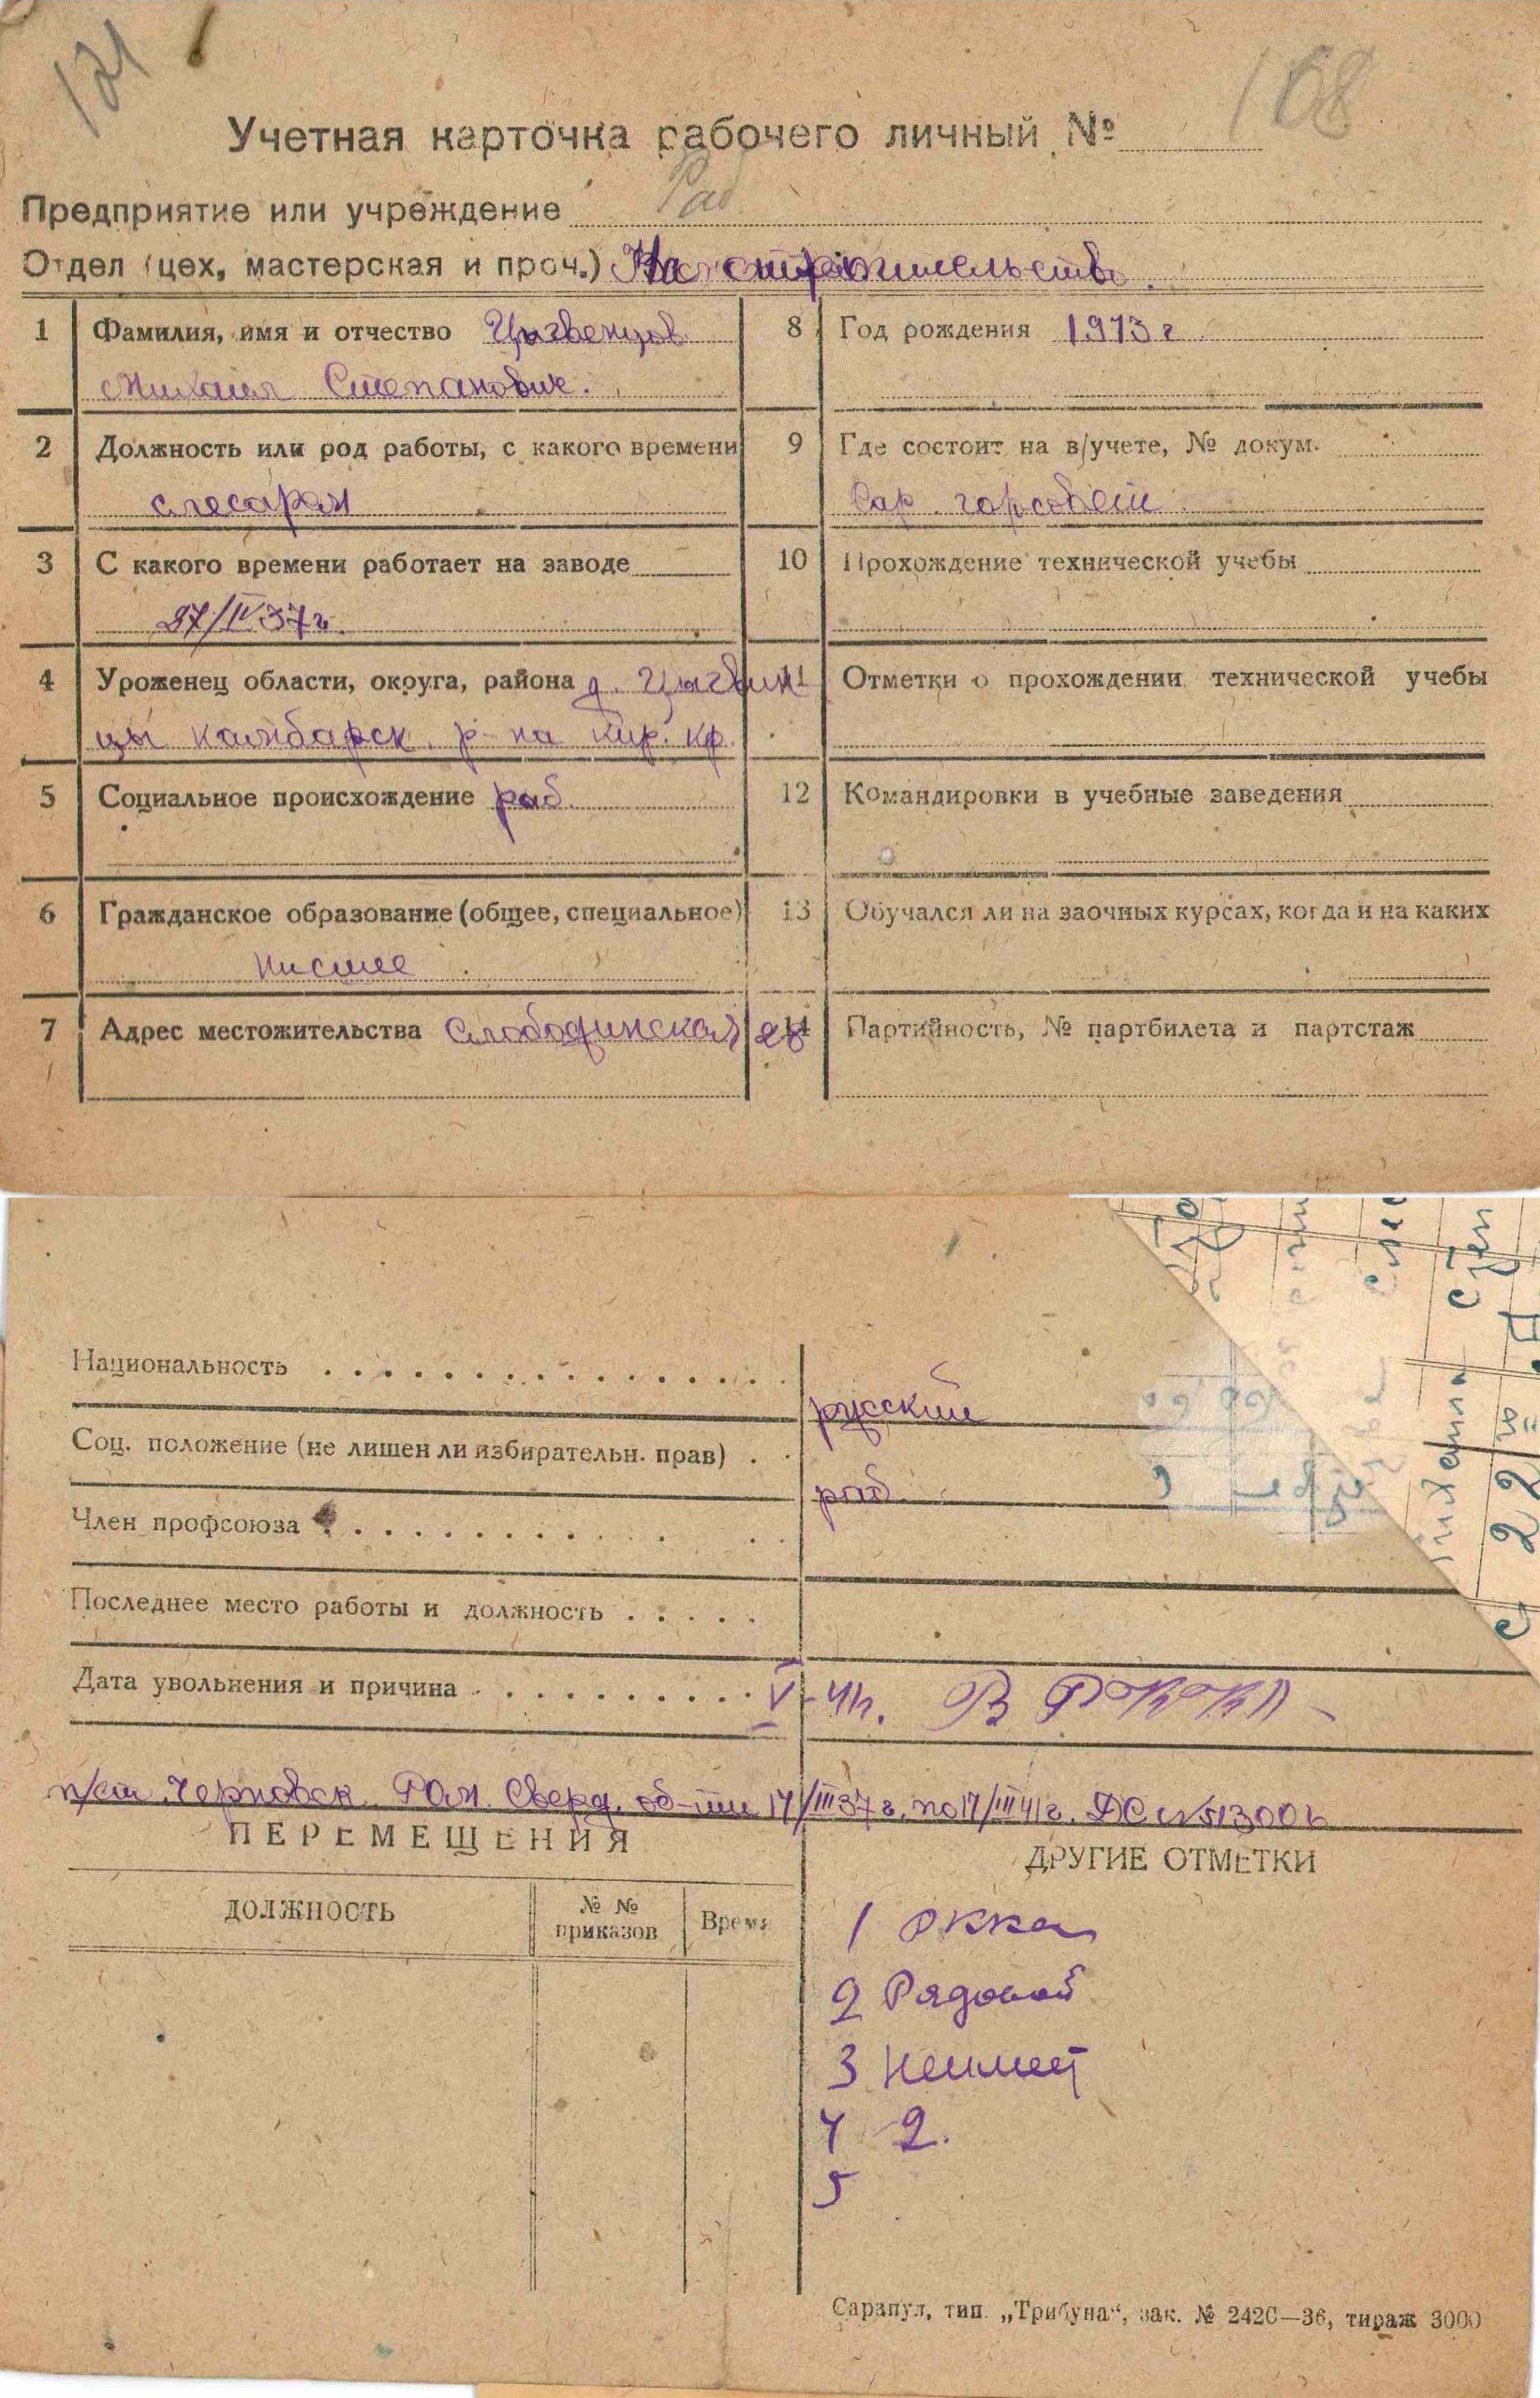 121
168
Учетная карточка рабочего личный №
Предприятие или учреждение Раб
Отдел (цех, мастерская и проч.) На строительство.
1 Фамилия, имя и отчество Цигвенцов
Михаил Степанович.
2 Должность или род работы, с какого времени
слесарем
3 С какого времени работает на заводе
27/IV 37 г.
4 Уроженец области, округа, района д. Цыгвин
цы Камбарск. р-на Кир. кр.
5 Социальное происхождение раб.
6 Гражданское образование (общее, специальное)
низшее
7 Адрес местожительства Слободинская 28
8 Год рождения 1913 г.
9 Где состоит на в/учете, № докум.
Сар. горсовет.
10 Прохождение технической учебы
11 Отметки о прохождении технической учебы
12 Командировки в учебные заведения
13 Обучался ли на заочных курсах, когда и на каких
14 Партийность, № партбилета и партстаж
Национальность русский
Соц. положение (не лишен ли избирательн. прав) раб.
Член профсоюза
Последнее место работы и должность
Дата увольнения и причина V-41г. В РККА
п/ст. Черновск. РОМ. Сверд. об-ти 17/III 37 г. по 17/III 41 г.
ПЕРЕМЕЩЕНИЯ
ДОЛЖНОСТЬ
№ №
приказов
Время
ДРУГИЕ ОТМЕТКИ
1 РККА
2 Рядовой
3 Неимеет
4 2.
5
Сарапул, тип. „Трибуна“, зак. № 2420—36, тираж 3000